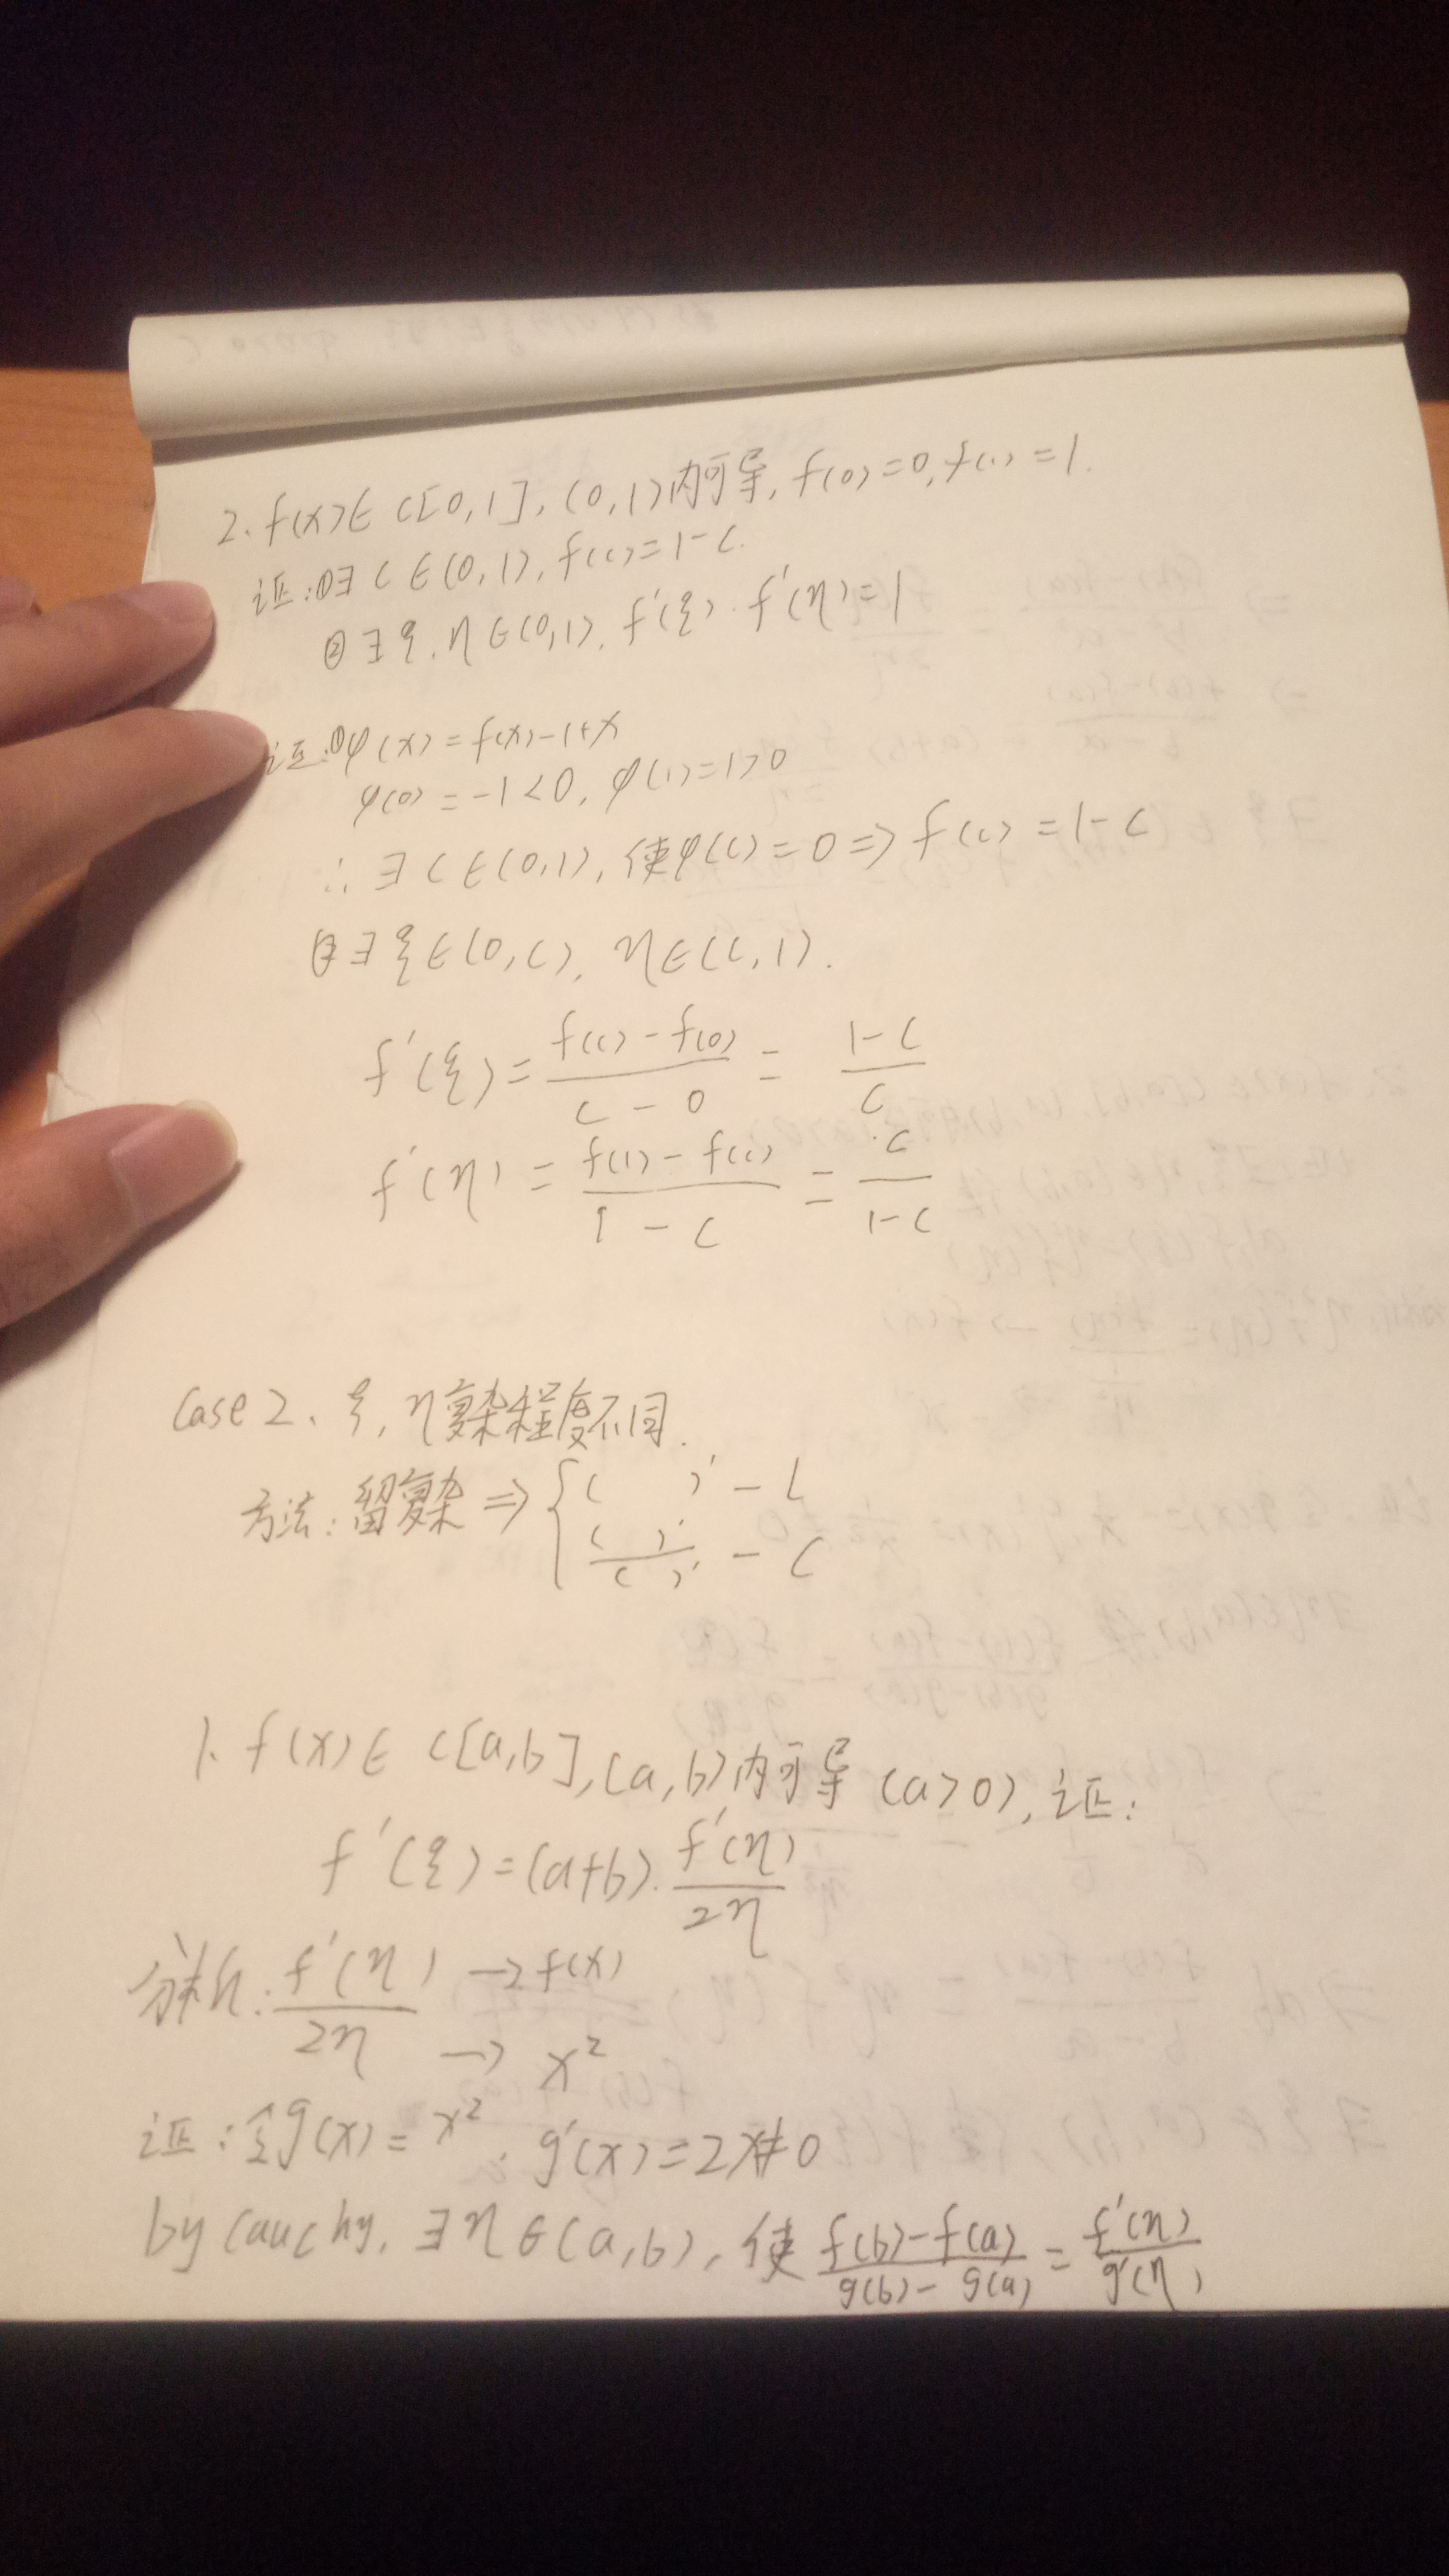 2. f(x)∈C[0,1], (0,1)内可导, f(0)=0, f(1)=1.
证:①∃c∈(0,1), f(c)=1-c.
②∃ξ,η∈(0,1), f'(ξ)·f'(η)=1
证:①φ(x)=f(x)-1+x
φ(0)=-1<0, φ(1)=1>0
∴∃c∈(0,1), 使φ(c)=0⇒f(c)=1-c
②∃ξ∈(0,c), η∈(c,1).
f'(ξ)=\frac{f(c)-f(0)}{c-0}=\frac{1-c}{c}
f'(η)=\frac{f(1)-f(c)}{1-c}=\frac{c}{1-c}
Case 2、ξ,η复杂程度不同.
方法:留复杂⇒{( )'-L
\frac{( )'}{( )'}-C
1. f(x)∈C[a,b], (a,b)内可导(a>0), 证:
f'(ξ)=(a+b)·\frac{f'(η)}{2η}
分析:\frac{f'(η)}{2η} →f(x)
→x²
证:令g(x)=x², g'(x)=2x≠0
by Cauchy, ∃η∈(a,b), 使\frac{f(b)-f(a)}{g(b)-g(a)}=\frac{f'(η)}{g'(η)}